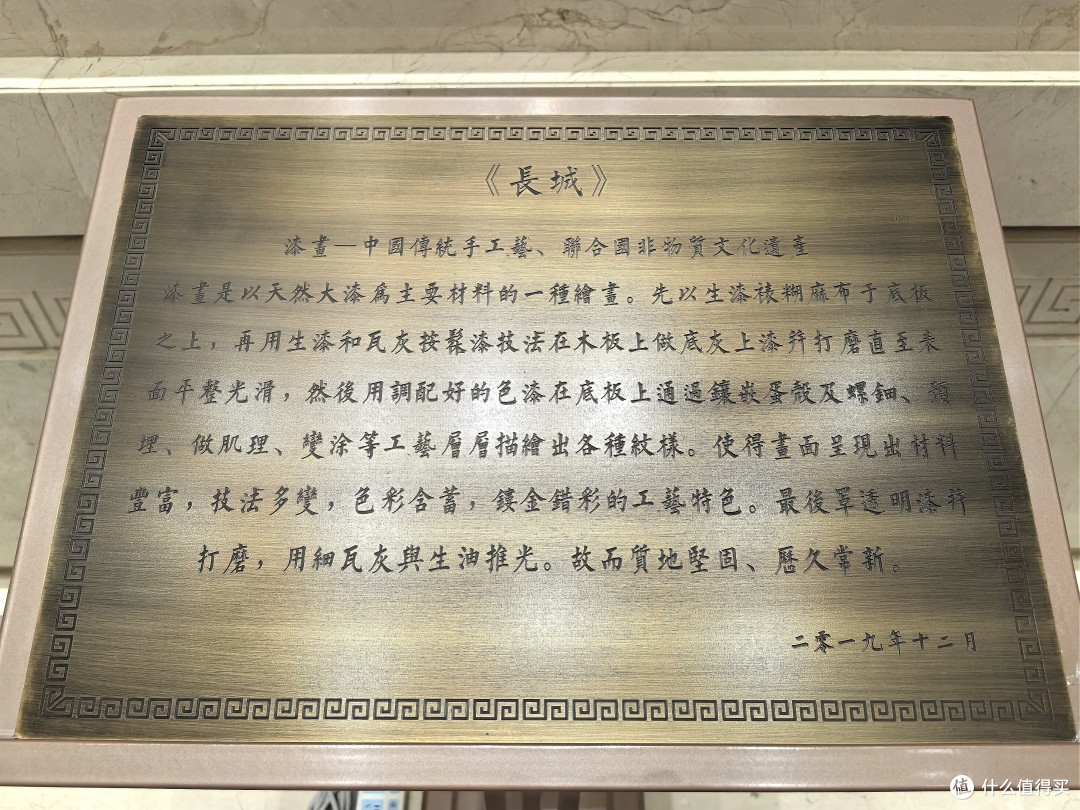 《長城》
漆畫—中國傳統手工藝、聯合國非物質文化遺產
漆畫是以天然大漆為主要材料的一種繪畫。先以生漆裱糊麻布于底板
之上，再用生漆和瓦灰按髹漆技法在木板上做底灰上漆并打磨直至表
面平整光滑，然後用調配好的色漆在底板上通過鑲嵌蛋殼及螺鈿、
埋、做肌理、變涂等工藝層層描繪出各種紋樣。使得畫面呈現出材料
豐富，技法多變，色彩含蓄，鏤金錯彩的工藝特色。最後罩透明漆并
打磨，用細瓦灰與生油推光。故而質地堅固、歷久常新。
二零一九年十二月
值 什么值得买